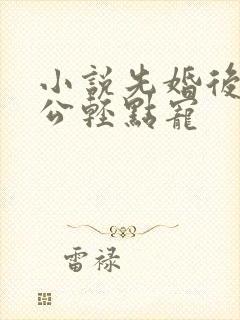 小說先婚後
公輕點寵
雷禄